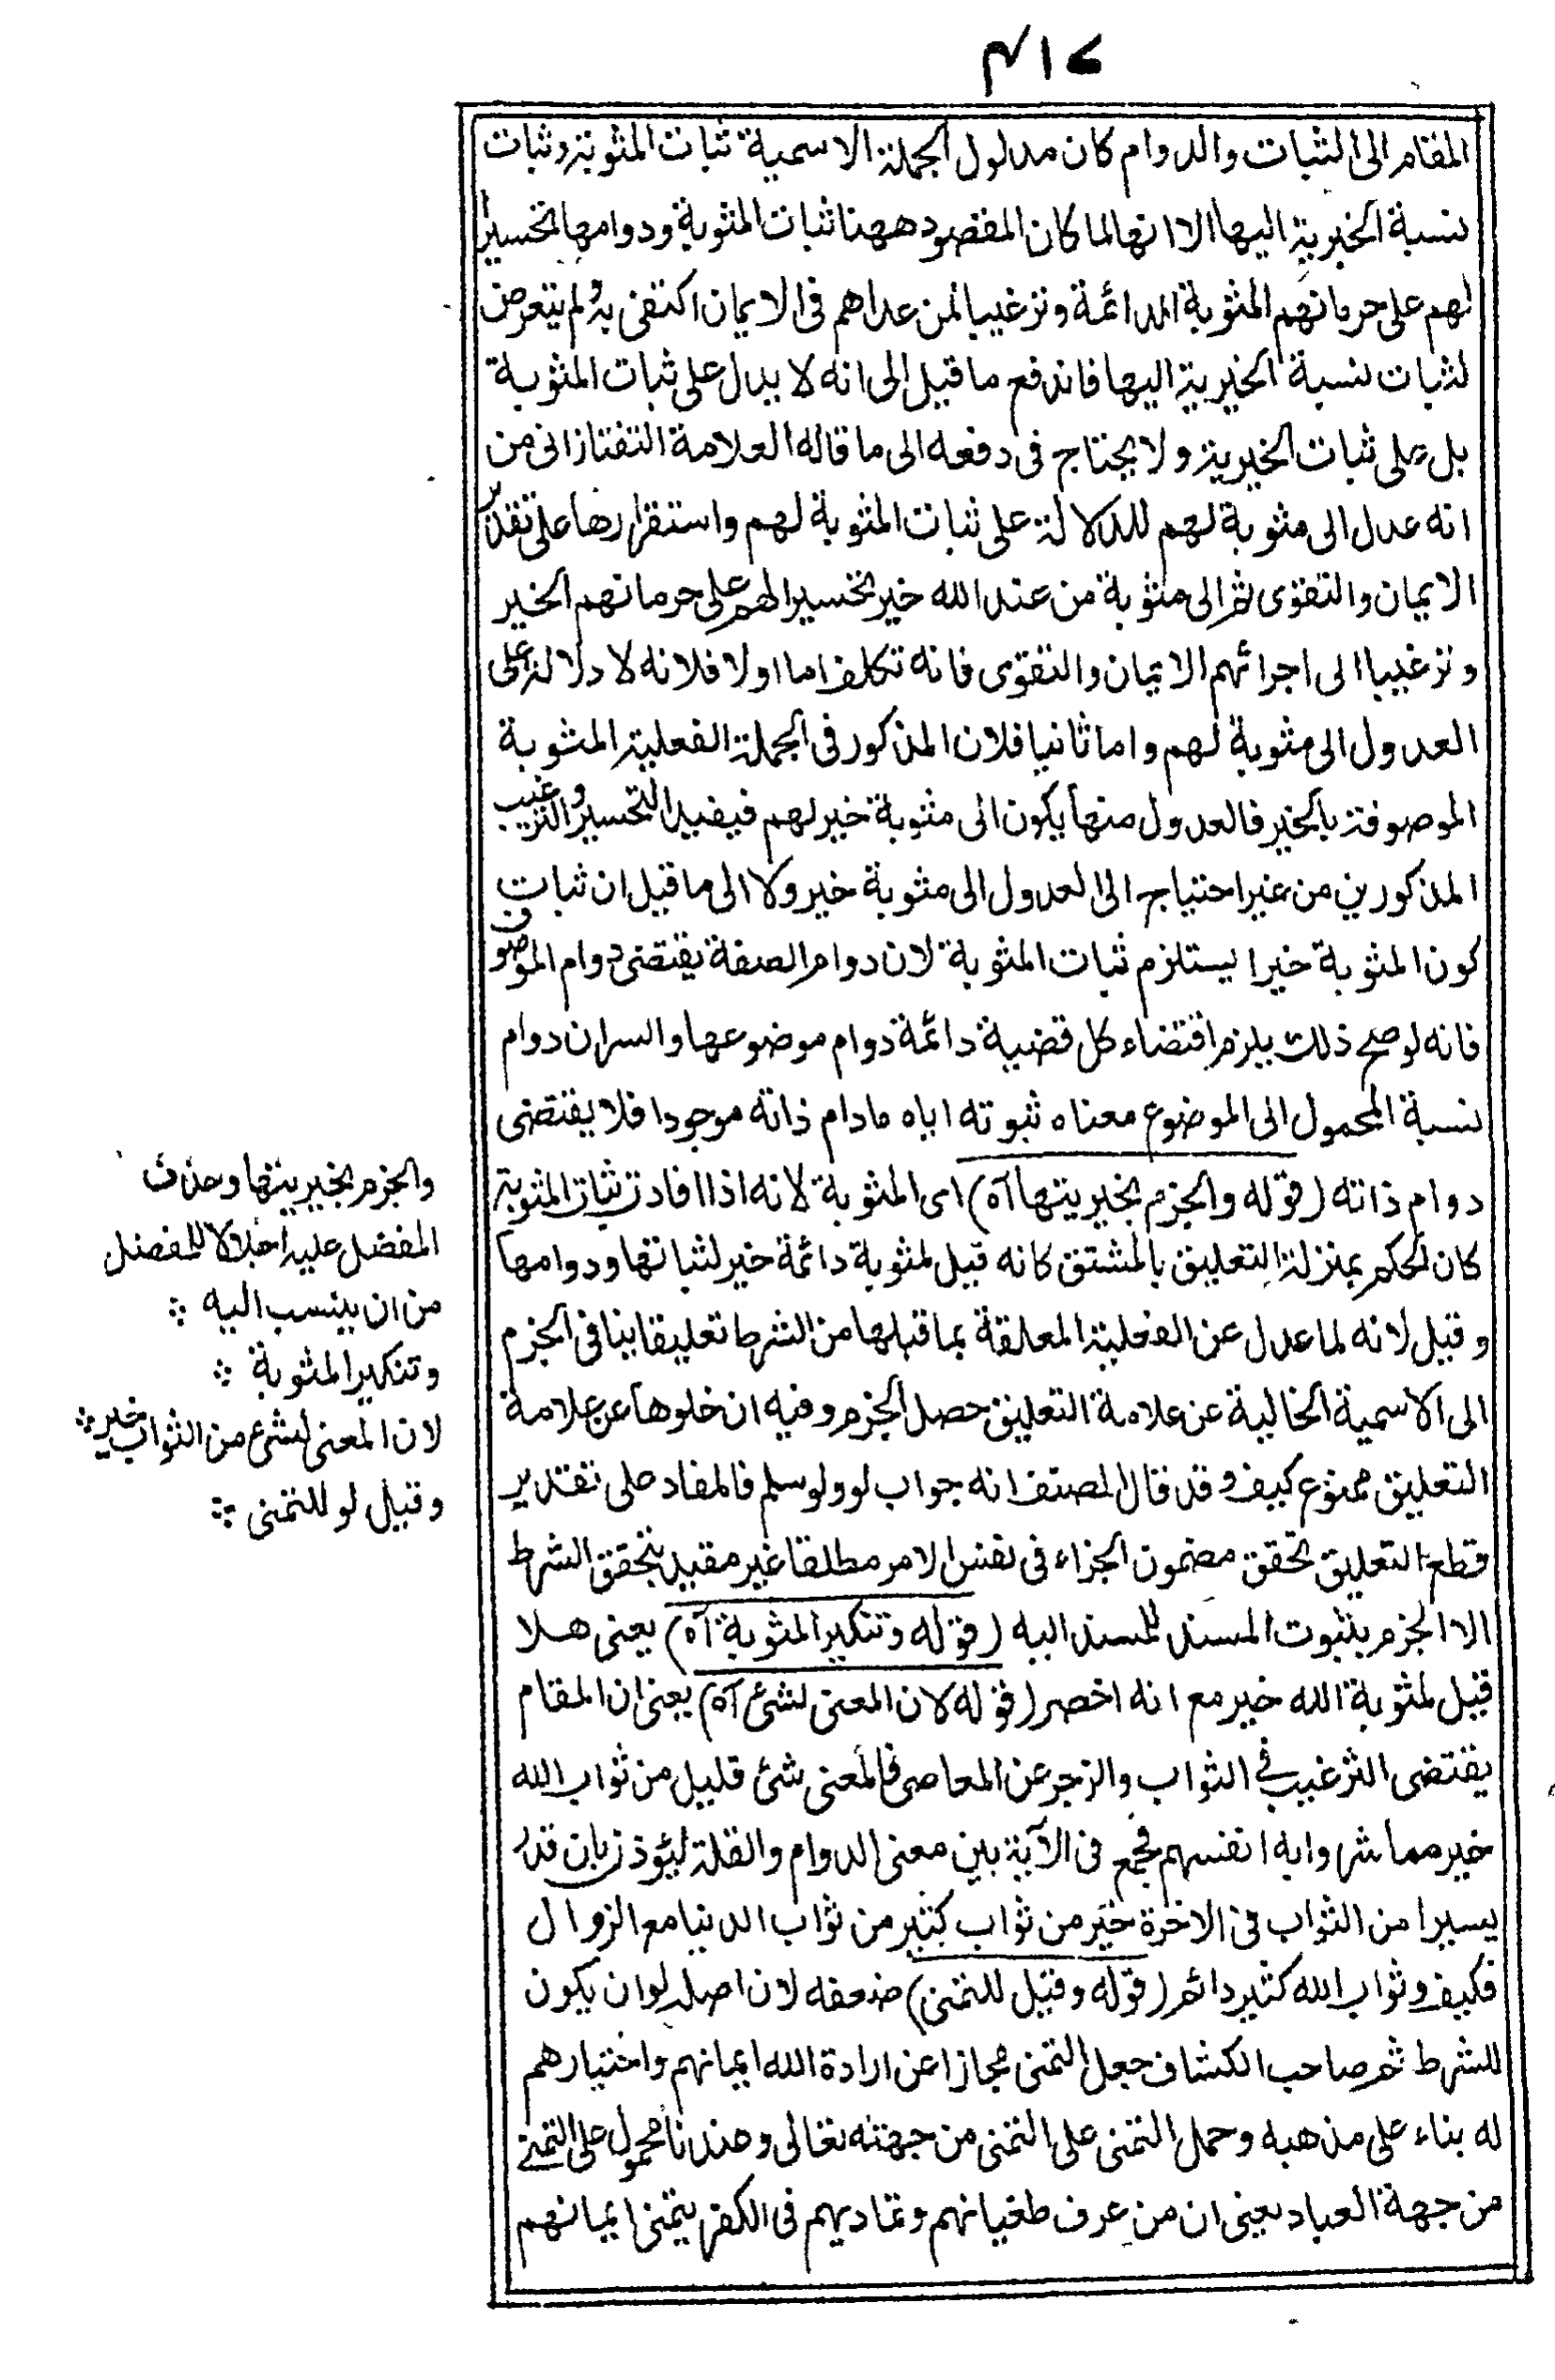 ٤١٧
المقام الى الثبات والدوام كان مدلول الجملة الاسمية ثبات المثوبة وثبات
نسبة الخيرية اليها الا انها لما كان المقصود ههنا ثبات المثوبة ودوامها تحسيرا
لهم على حرمانهم المثوبة الدائمة وترغيبا لمن عداهم فى الايمان اكتفى به ولم يتعرض
لثبات نسبة الخيرية اليها فاندفع ما قيل الى انه لا يدل على ثبات المثوبة
بل على ثبات الخيرية ولا يحتاج فى دفعه الى ما قاله العلامة التفتازانى من
انه عدل الى مثوبة لهم للدلالة على ثبات المثوبة لهم واستقرارها على تقدير
الايمان والتقوى ثم الى مثوبة من عند الله خير تحسيرا لهم على حرمانهم الخير
وترغيبا الى اجرائهم الايمان والتقوى فانه تكلف اما اولا فلانه لا دلالة على
العدول الى مثوبة لهم واما ثانيا فلان المذكور فى الجملة الفعلية المثوبة
الموصوفة بالخير فالعدول منها يكون الى مثوبة خير لهم فيفيد التحسير والترغيب
المذكورين من غير احتياج الى العدول الى مثوبة خير ولا الى ما قيل ان ثبات
كون المثوبة خيرا يستلزم ثبات المثوبة لان دوام الصفة يقتضى دوام الموصوف
فانه لو صح ذلك يلزم اقتضاء كل قضية دائمة دوام موضوعها والسر ان دوام
نسبة المحمول الى الموضوع معناه ثبوته اياه ما دام ذاته موجودا فلا يقتضى
دوام ذاته (قوله والجزم بخيريتها آه) اى المثوبة لانه اذا افادت ثبات المثوبة
كان الحكم بمنزلة التعليق بالمشتق كانه قيل لمثوبة دائمة خير لثباتها ودوامها
وقيل لانه لما عدل عن الفعلية المعلقة بما قبلها من الشرط تعليقا ينافى الجزم
الى الاسمية الخالية عن علامة التعليق حصل الجزم وفيه ان خلوها عن علامة
التعليق ممنوع كيف وقد قال المصنف انه جواب لو ولو سلم فالمفاد على تقدير
قطع التعليق تحقق مضمون الجزاء فى نفس الامر مطلقا غير مقيد بتحقق الشرط
الا الجزم بثبوت المسند للمسند اليه (قوله وتنكير المثوبة آه) يعنى هلا
قيل لمثوبة الله خير مع انه اخصر (قوله لان المعنى لشئ آه) يعنى ان المقام
يقتضى الترغيب فى الثواب والزجر عن المعاصى فالمعنى شئ قليل من ثواب الله
خير مما شروا به انفسهم فجمع فى الآية بين معنى الدوام والقلة ليؤذن بان قدرا
يسيرا من الثواب فى الاخرة خير من ثواب كثير من ثواب الدنيا مع الزوال
فكيف وثواب الله كثير دائم (قوله وقيل للتمنى) ضعفه لان اصل لو ان يكون
للشرط ثم صاحب الكشاف جعل التمنى مجازا عن ارادة الله ايمانهم واختيارهم
له بناء على مذهبه وحمل التمنى على التمنى من جهته تعالى وعندنا محمول على التمنى
من جهة العباد يعنى ان من عرف طغيانهم وتماديهم فى الكفر يتمنى ايمانهم
والجزم بخيريتها وحذف
المفضل عليه اجلالا للمفضل
من ان ينسب اليه
وتنكير المثوبة
لان المعنى لشئ من الثواب خير
وقيل لو للتمنى